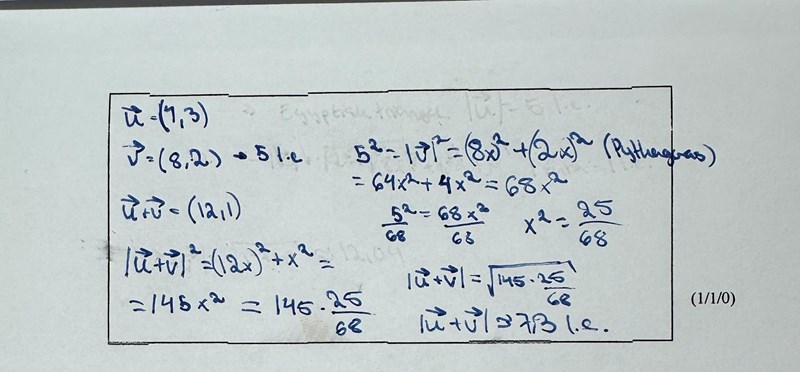 u⃗ = (4,3)
v⃗ = (8,2) → 5 l.e
u⃗+v⃗ = (12,1)
|u⃗+v⃗|² = (12x)² + x² =
= 145x² = 145 · 25/68
5² = |v⃗|² = (8x)² + (2x)² (Pythagoras)
= 64x² + 4x² = 68x²
5²/68 = 68x²/68 x² = 25/68
|u⃗+v⃗| = √(145 · 25/68)
|u⃗+v⃗| ≈ 7,3 l.e.
(1/1/0)